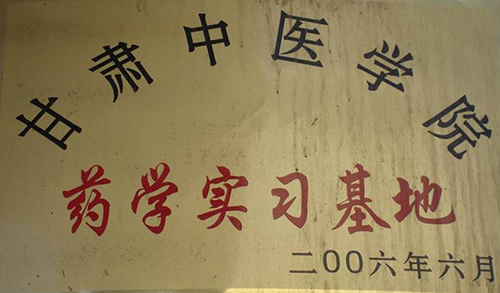 甘肃中医学院
药学实习基地
二00六年六月